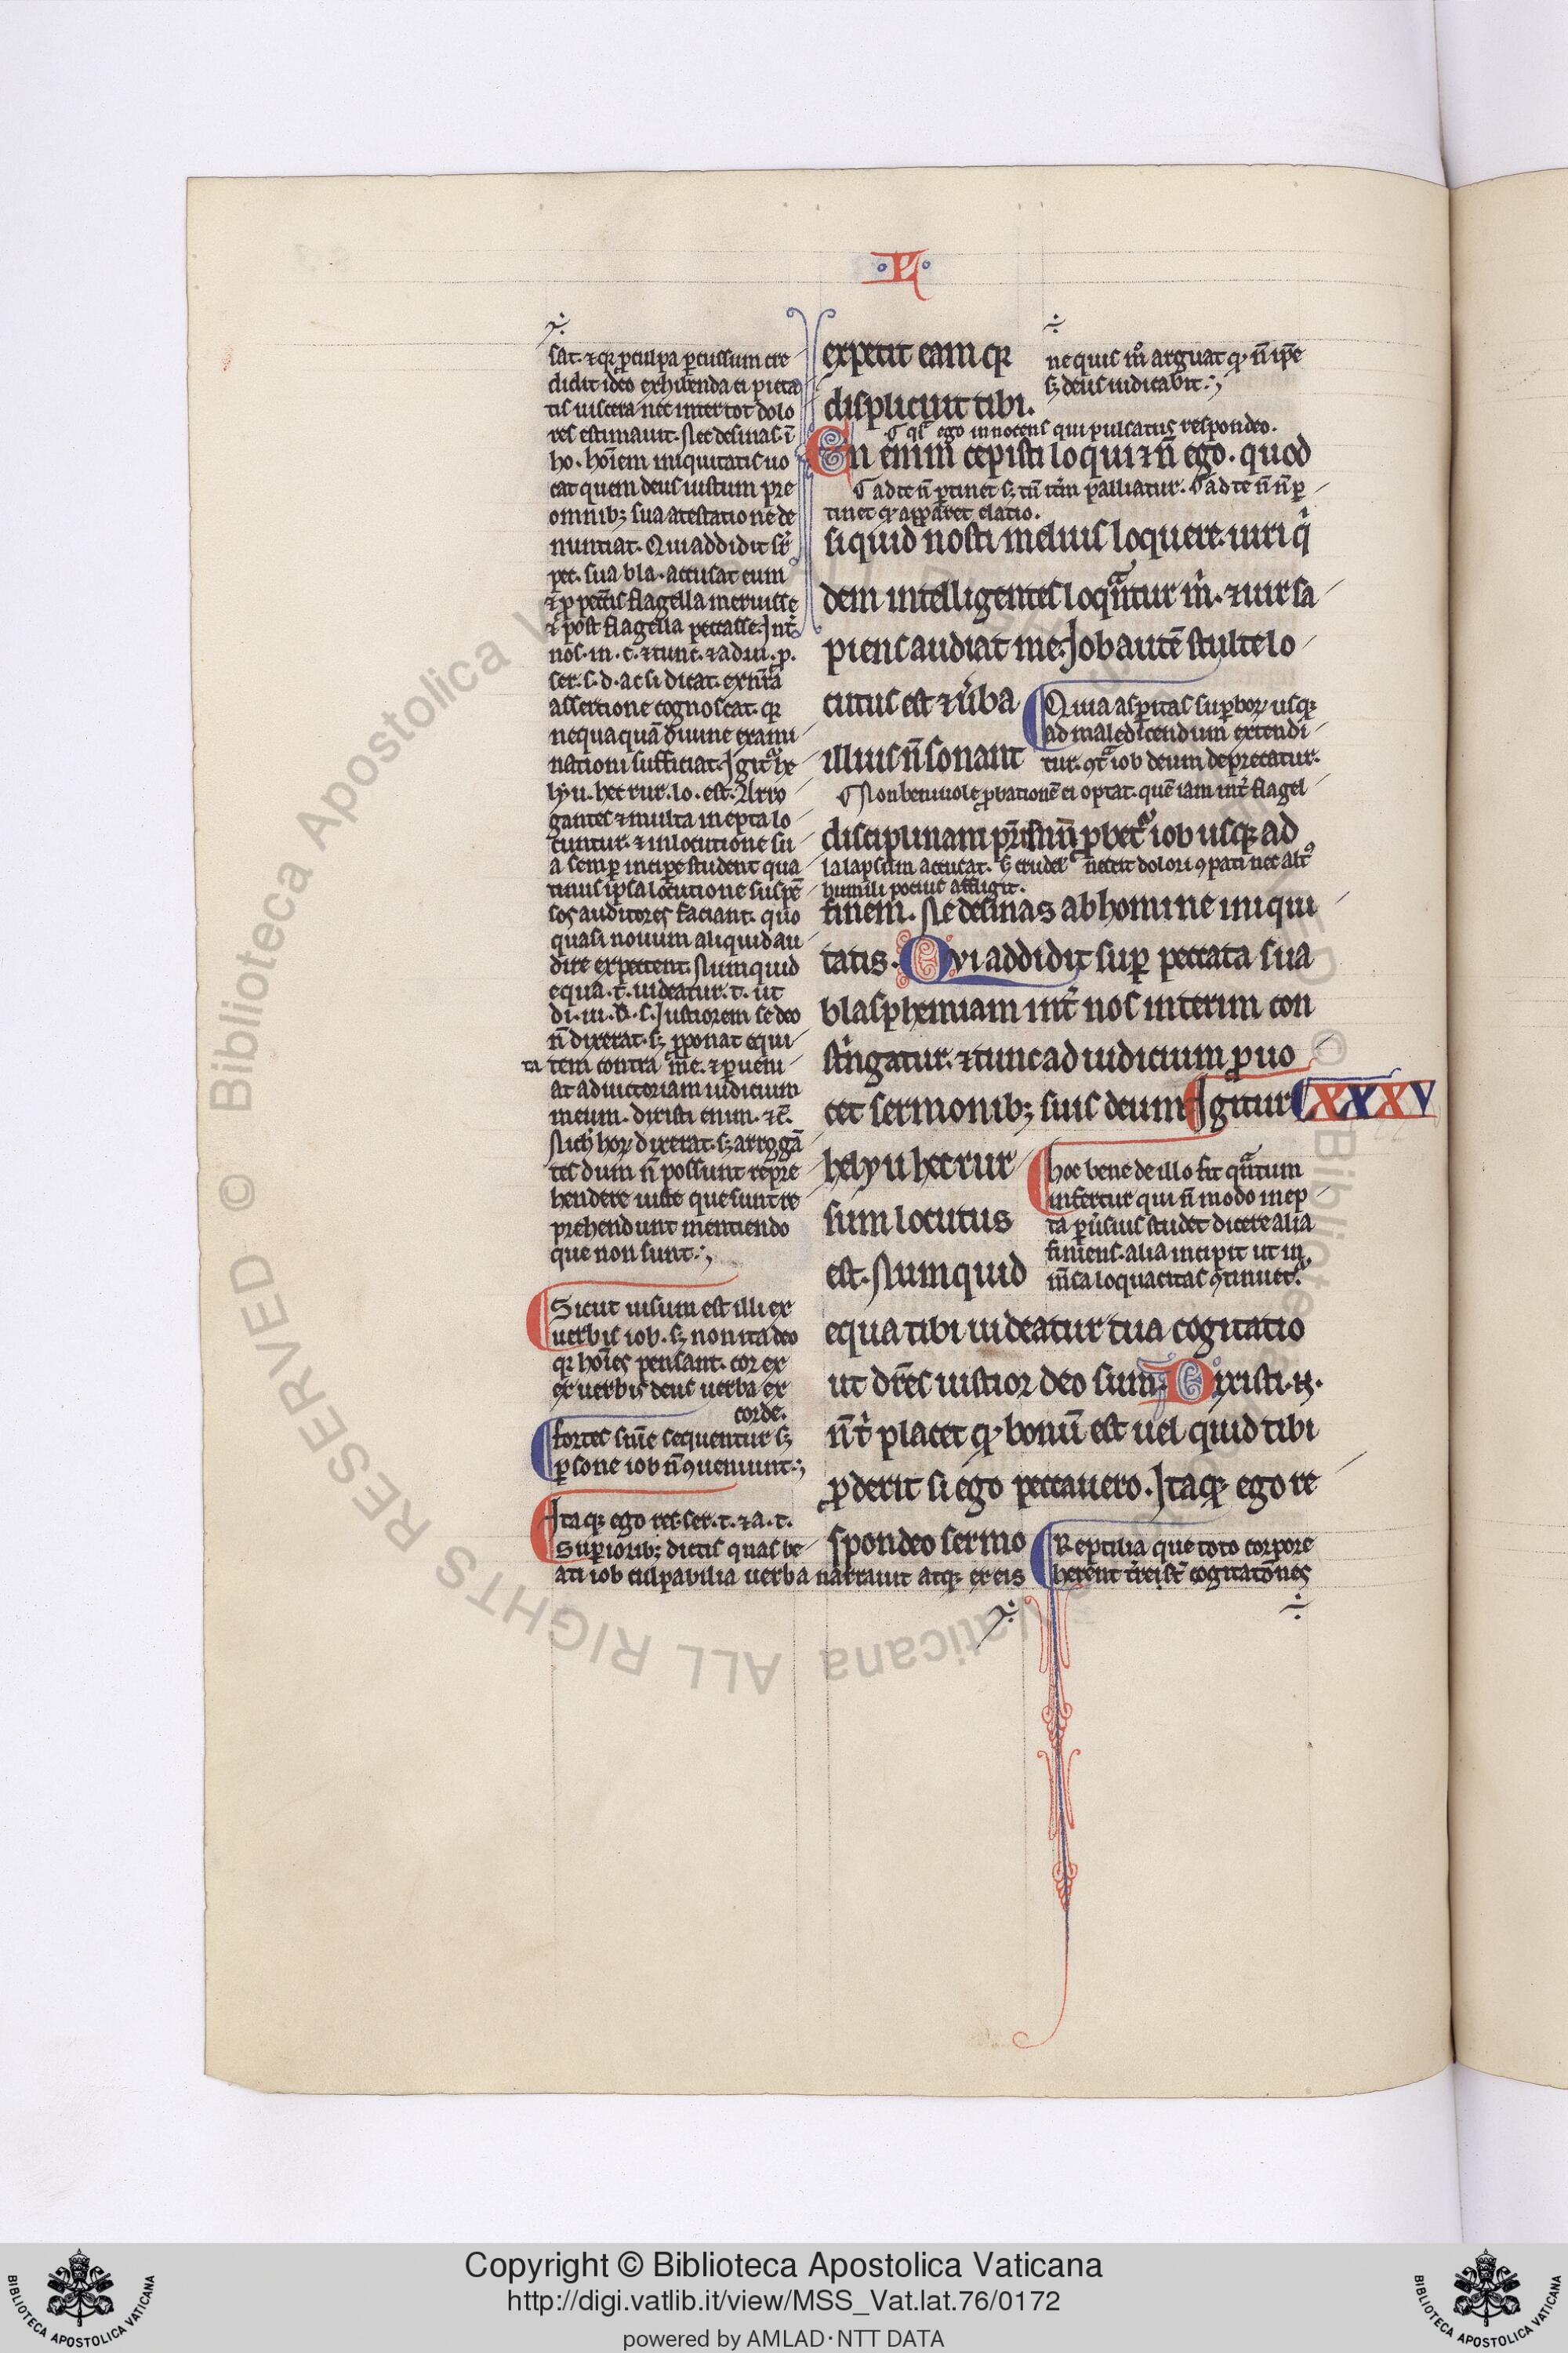 L
sat. ⁊ qꝫ ꝑ culpa ꝑcussum cre
didit ideo exhibenda ei pieta
tis uiscera nec inter tot dolo
res estimauit. Ne desinas. ī
ho. hoīem iniquitatis uo
cat quem deus iustum pre
omnibꝫ sua atestatione de
nuntiat. Qui addidit sr̄
pec. sua bla. accusat eum
⁊ ꝓ pecc̄is flagella meruisse
⁊ post flagella peccasse. Int̄
nos. in. c. ⁊ tunc. ⁊ ad iu. p.
ser. s. d. ac si dicat. ex nr̄a
assertione cognoscat. qꝫ
nequaquā diuine exami
nationi sufficiat. Igit᷑ he
lyu. hec rur. lo. est. Arro
gantes ⁊ multa inepta lo
cuntur. ⁊ in locutione su
a semꝑ incipe student qua
tinus ipsa locutione suspē
sos auditores faciant. quo
quasi nouum aliquid au
dire expectent. Numquid
equa. t. uideatur. t. ut
di. iu. d. s. Iustiorem se deo
n̄ dixerat. sꝫ ꝓponat equi
ta tem contra me. ⁊ ꝑueni
at ad uictoriam iudicium
meum. dixisti enim. ⁊c̄.
Nich̄ hoꝝ dixerat. sꝫ arrogā
tes dum n̄ possunt repre
hendere iuste que sunt re
prehendunt mentiendo
que non sunt.
Sicut uisum est illi ex
uerbis iob. sꝫ non ita deo
qꝫ hoīes pensant. cor ex
ex uerbis deus uerba ex
corde.
fortes sn̄īe sequentur sꝫ
ꝑsone iob n̄ ꝯueniunt.
Itaqꝫ ego res. ser. t. ⁊ a. t.
Suꝑioribꝫ dictis quasi be
ati iob culpabilia uerba narrauit atqꝫ ex eis
expetit eam qꝫ
displicuit tibi.
ne quis m̊ arguat qꝫ n̄ ip̄e
sꝫ deus iudicabit.
qs̄ ego innocens qui pulsatus respondeo.
En enim cepisti loqui ⁊ n̄ ego. quod
ad te n̄ ꝑtinet sꝫ tn̄ itīm palliatur. ad te n̄ n̄ ꝑ
tinet qꝫ apparet elatio.
si quid nosti melius loquere. uiri q̇
dem intelligentes loqͣntur m̄. ⁊ uir sa
piens audiat me. Iob autē stulte lo
cutus est ⁊ ūba
illius n̄ sonant
Quia asꝑitas suꝑboꝝ usqꝫ
ad maledicendum extendi
tur. ꝯtͣ iob deum deprecatur.
Non beniuole ꝓbationē ei optat. quē iam int̄ flagel
disciplinam prīs mī ꝓbet᷑ iob usqꝫ ad
la lapsum accusat. sꝫ crudeˡ necit dolori ꝯpati nec alt᷑
humili pocius affligit.
finem. Ne desinas ab homine iniqui
tatis. Qui addidit suꝑ peccata sua
blasphemiam int̄ nos interim con
str̄ngatur. ⁊ tunc ad iudicium ꝓuo
cet sermonibꝫ suis deum Igitur XXXV
helyu hec rur
sum locutus
est. Numquid
hoc bene de illo fit qͣntum
infertur qui n̄ modo inep
ta ꝑūsius studet dicere alia
finiens. alia incipit ut in
m̄sa loquacitas ꝯtinuet᷑.
equa tibi uideatur tua cogitatio
ut dr̄es iustior deo sum. Dixisti. n̄.
n̄ t̄ placet qꝫ bonū est uel quid tibi
ꝓderit si ego peccauero. Itaqꝫ ego re
spondeo sermo
Reptilia que toto corpore
herent tr̄e is̄t cogitatōnes
Copyright © Biblioteca Apostolica Vaticana
http://digi.vatlib.it/view/MSS_Vat.lat.76/0172
powered by AMLAD·NTT DATA
BIBLIOTECA APOSTOLICA VATICANA
BIBLIOTECA APOSTOLICA VATICANA